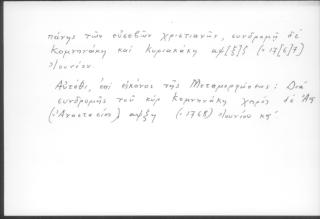 πάνης τῶν εὐσεβῶν χριστιανῶν, συνδρομῇ δὲ
Κομνηνάκη καὶ Κυριακάκη αψ[ξ]ζ (=17[6]7)
Ἰουνίου.
Αὐτόθι, ἐπὶ εἰκόνος τῆς Μεταμορφώσεως: Διὰ
συνδρομῆς τοῦ κὺρ Κομνηνάκη χειρὸς δὲ Ἀπ
(=Ἀναστασίου) αψξη (=1768) Ἰουνίου κη΄